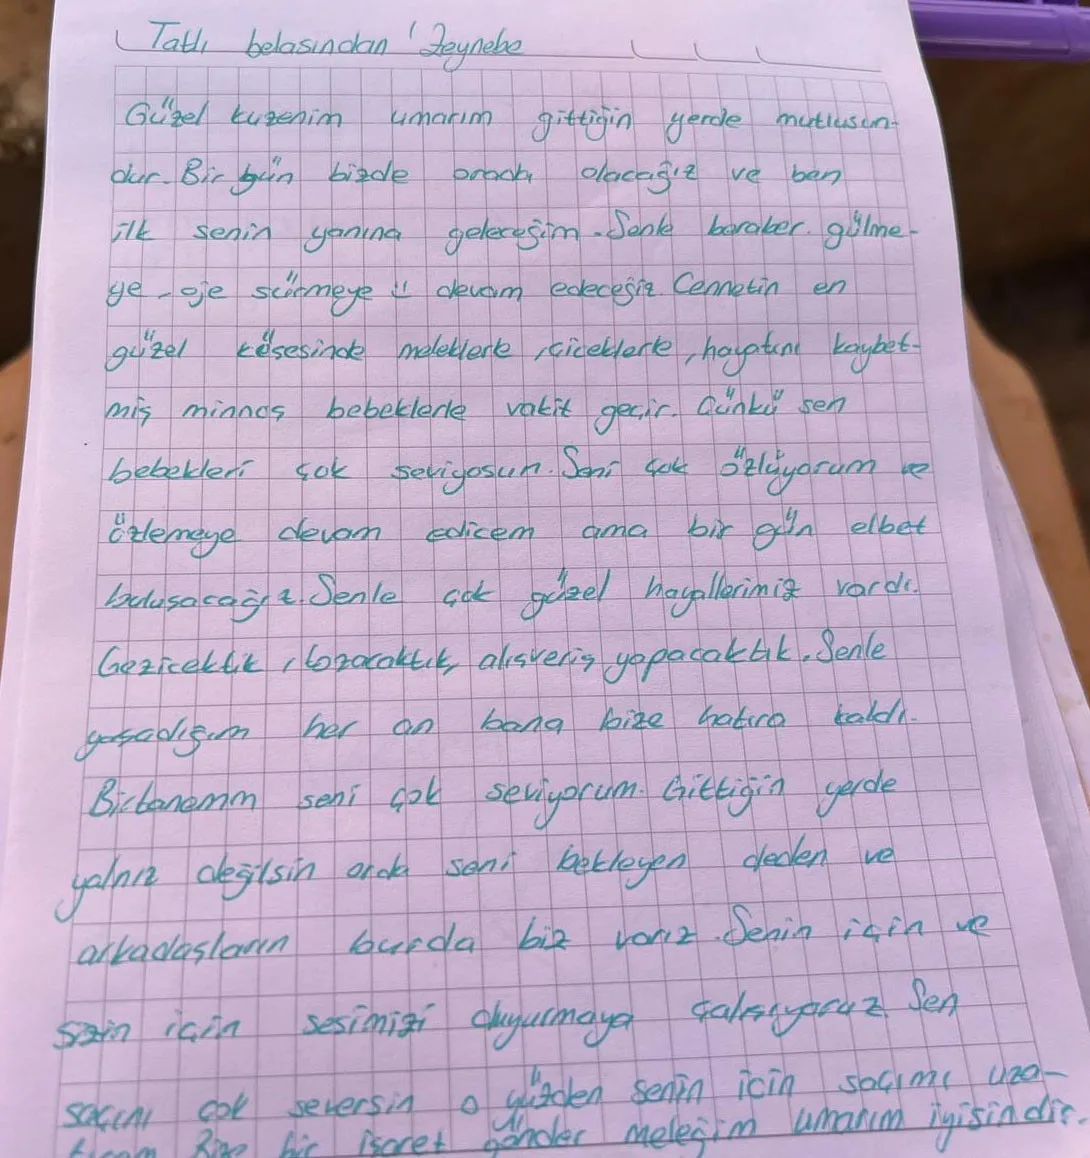 Tatlı belasından Zeynebe
Güzel kuzenim umarım gittiğin yerde mutlusun-
dur. Bir gün bizde orada olacağız ve ben
ilk senin yanına geleceğim. Senle beraber gülme-
ye, oje sürmeye devam edeceğiz. Cennetin en
güzel köşesinde meleklerle, çiceklerle, hayatını kaybet-
miş minnoş bebeklerle vakit geçir. Çünkü sen
bebekleri çok seviyosun. Seni çok özlüyorum ve
özlemeye devam edicem ama bir gün elbet
buluşacağız. Senle çok güzel hayallerimiz vardı.
Gezicektik, tozacaktık, alışveriş yapacaktık. Senle
yaşadığım her an bana bize hatıra kaldı.
Bictanemm seni çok seviyorum. Gittiğin yerde
yalnız değilsin orda seni bekleyen deden ve
arkadaşların burda biz varız. Senin için ve
sizin için sesimizi duyurmaya çalışıyoruz. Sen
saçını çok seversin o yüzden senin için saçımı uza-
Bize bir işaret gönder meleğim umarım iyisindir.